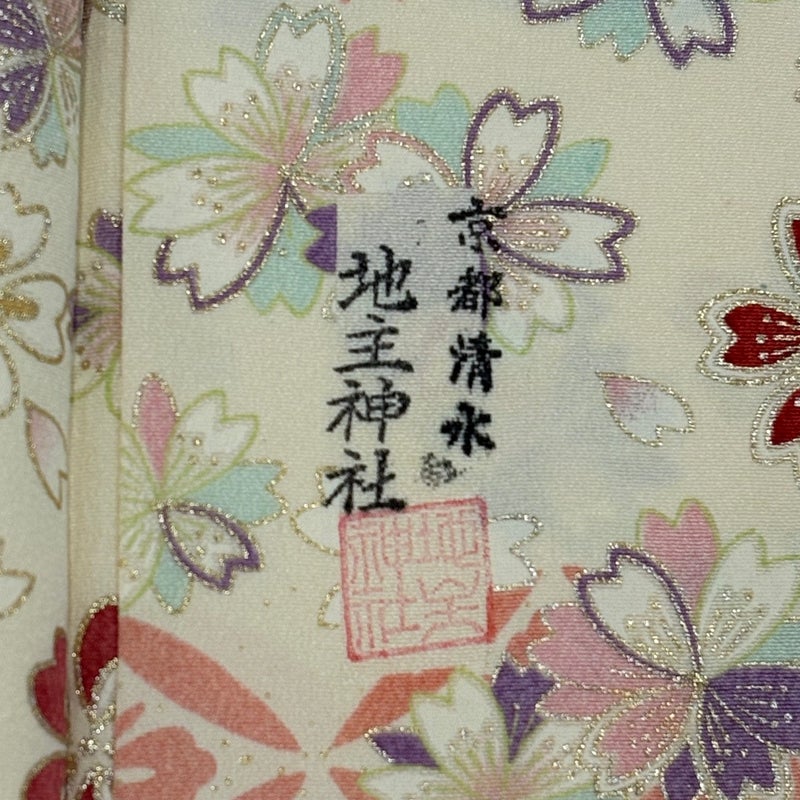 京都清水
地主神社
地主神社